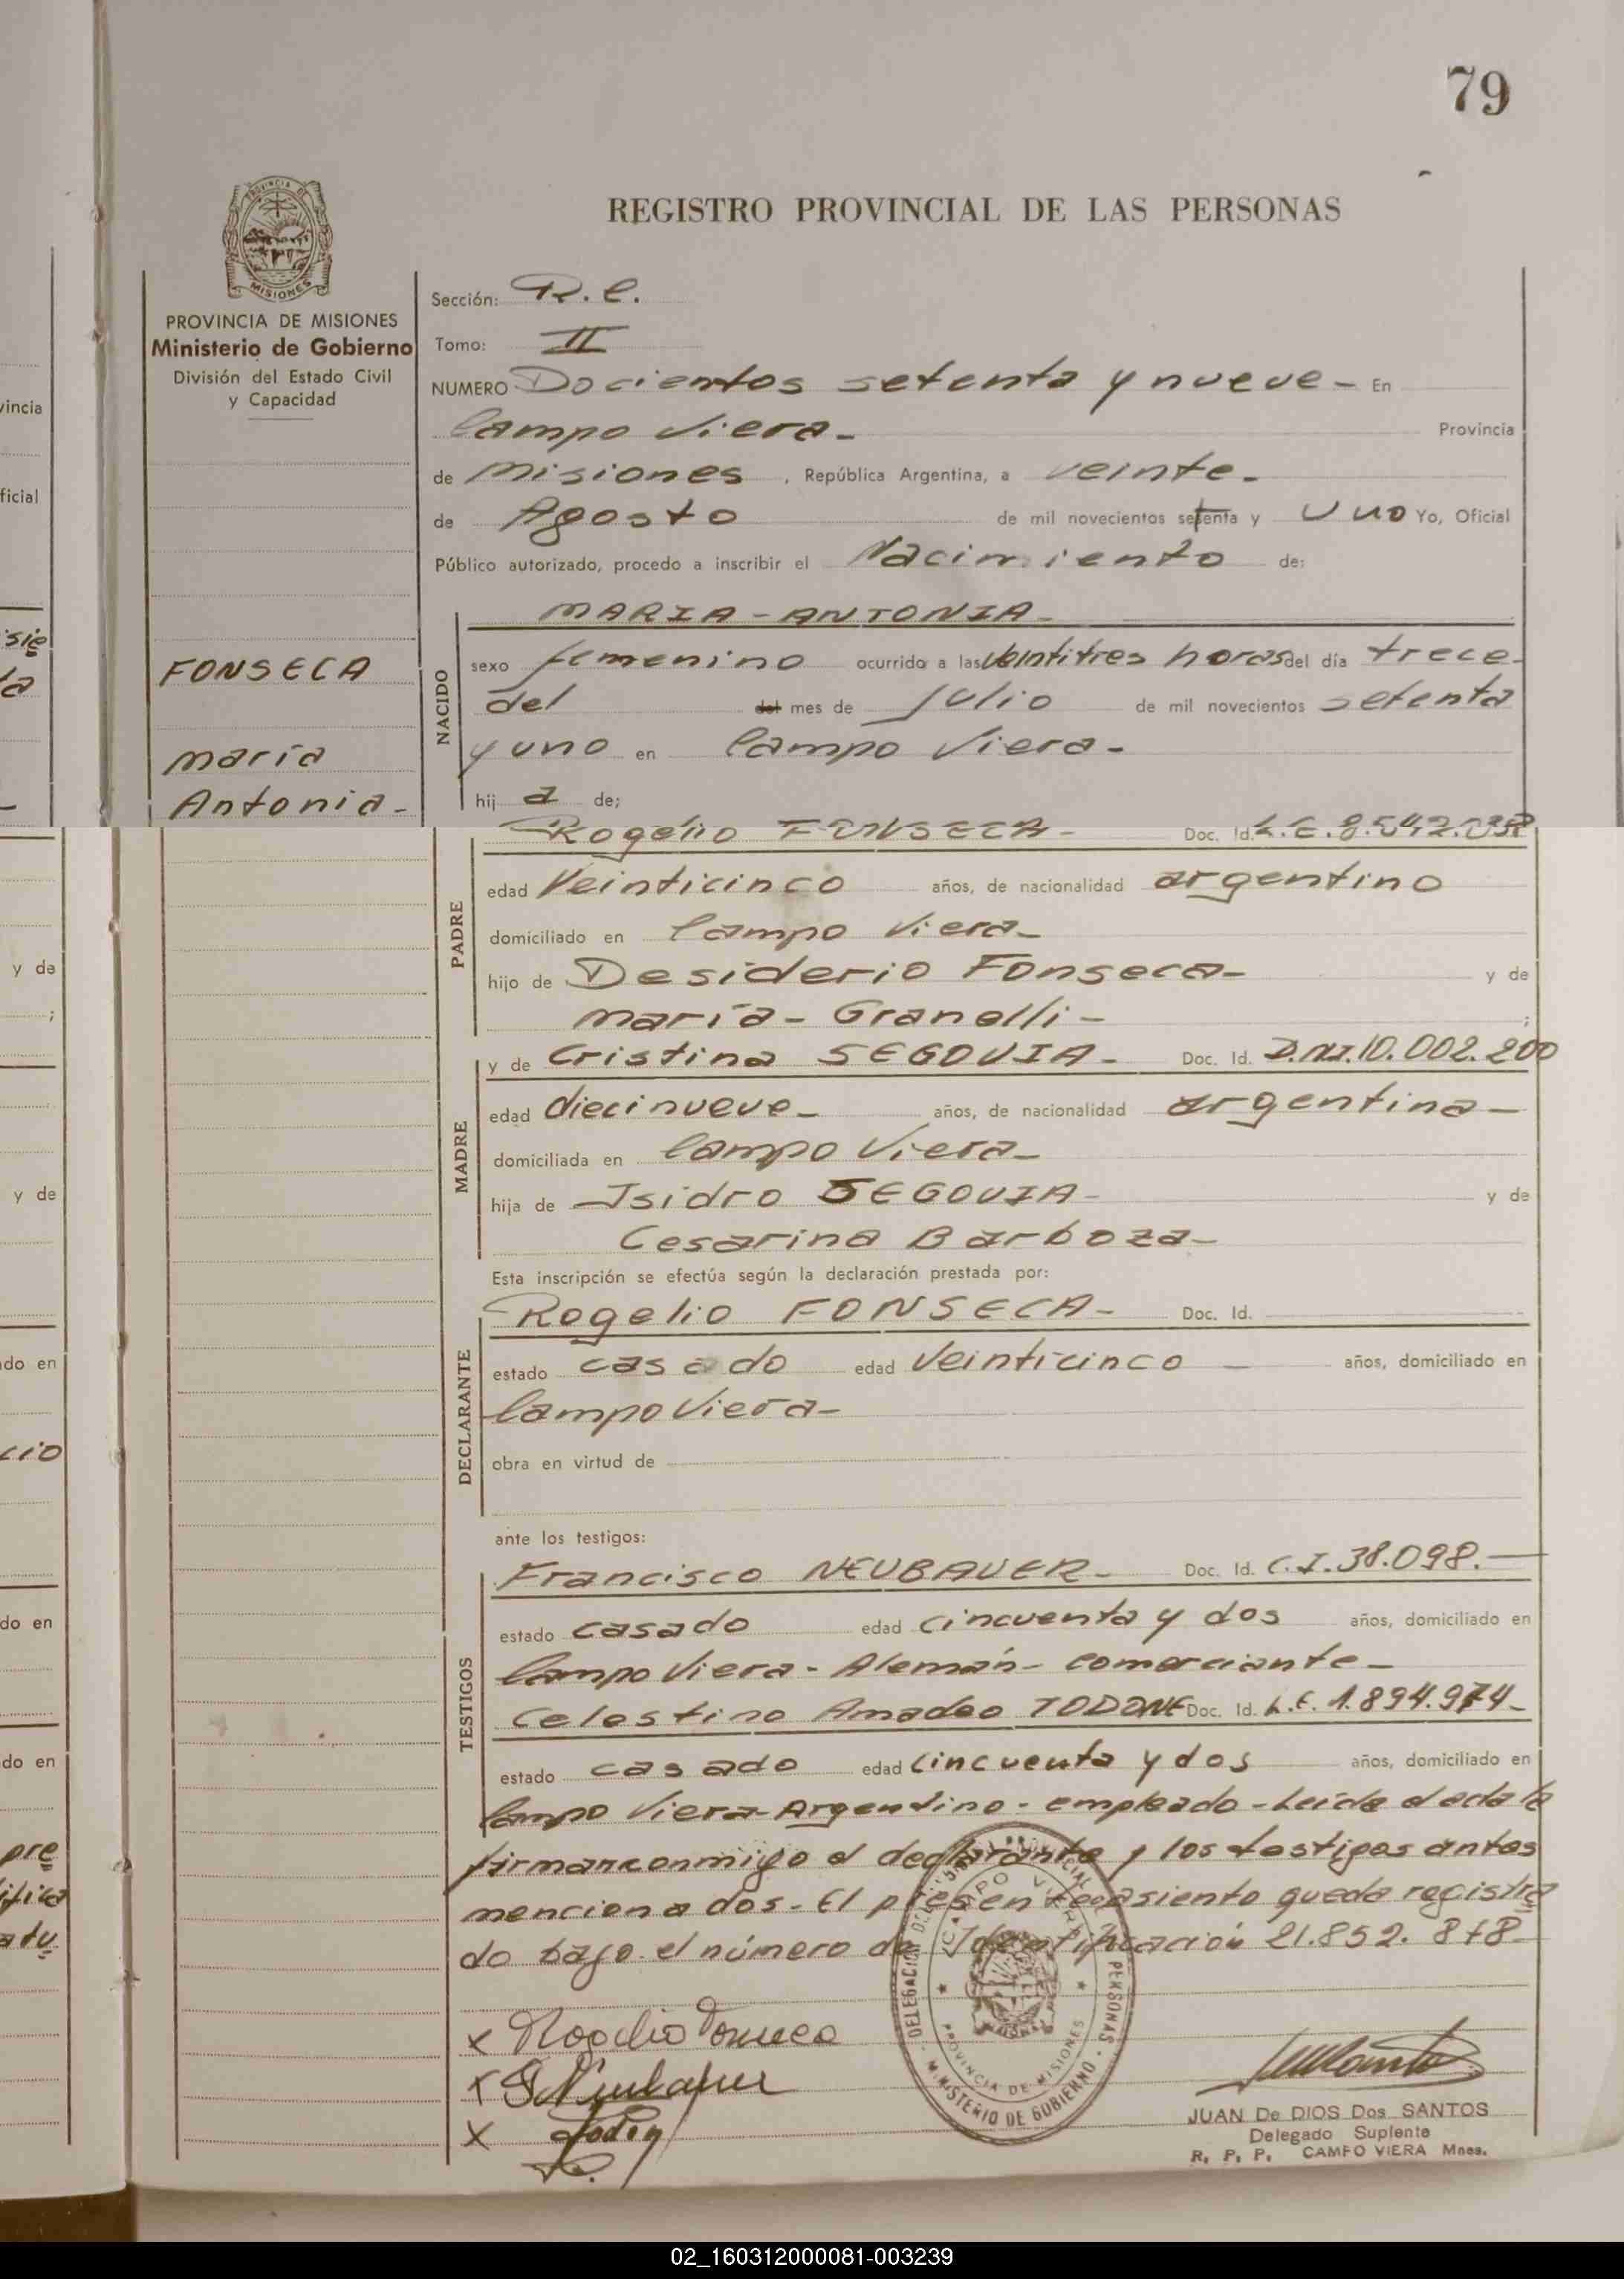 79
REGISTRO PROVINCIAL DE LAS PERSONAS
PROVINCIA DE MISIONES
Ministerio de Gobierno
División del Estado Civil
y Capacidad
FONSECA
maría
Antonia-
Sección: R.C.
Tomo: II
NUMERO Docientos setenta y nueve- En
Campo Viera- Provincia
de misiones, República Argentina, a veinte-
de Agosto de mil novecientos setenta y Uno Yo, Oficial
Público autorizado, procedo a inscribir el Nacimiento de:
MARIA-ANTONIA-
NACIDO
sexo femenino ocurrido a las veintitres horas del día trece-
del del mes de Julio de mil novecientos setenta
y uno en Campo Viera-
hij a de;
Rogelio FONSECA- Doc. Id. L.E.8.542.
PADRE
edad Veinticinco años, de nacionalidad argentino
domiciliado en Campo Viera-
hijo de Desiderio Fonseca- y de
maría-Granelli- ;
y de Cristina SEGOVIA- Doc. Id. D.NI.10.002.200
MADRE
edad diecinueve- años, de nacionalidad argentina-
domiciliada en Campo Viera-
hija de Isidro SEGOVIA- y de
Cesarina Barboza-
Esta inscripción se efectúa según la declaración prestada por:
Rogelio FONSECA- Doc. Id.
DECLARANTE
estado casado edad Veinticinco - años, domiciliado en
Campo Viera-
obra en virtud de
ante los testigos:
Francisco NEUBAUER- Doc. Id. C.I.38.098.-
TESTIGOS
estado casado edad cincuenta y dos años, domiciliado en
Campo Viera-Alemán-comerciante-
Celestino Amadeo TODONE Doc. Id. L.E. 1.894.974-
estado casado edad cincuenta y dos años, domiciliado en
Campo Viera-Argentino-empleado-Leída el acta la
firman conmigo el declarante y los testigos antes
mencionados-El presente asiento queda registra
do bajo el número de Identificación 21.852.878-
x Rogelio Fonseca
x Neubauer
x
DELEGACION DEL REGISTRO PROVINCIAL DE LAS PERSONAS - MINISTERIO DE GOBIERNO
CAMPO VIERA
PROVINCIA DE MISIONES
JUAN De DIOS Dos SANTOS
Delegado Suplente
R. P. P. CAMPO VIERA Mnes.
02_160312000081-003239